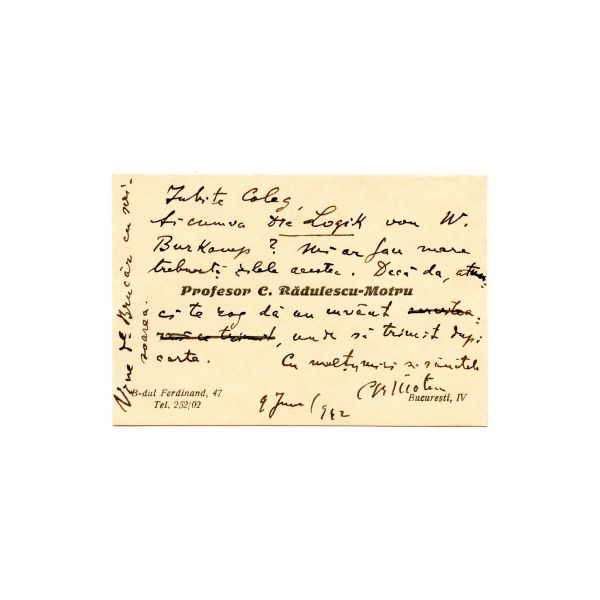 Iubite Coleg,
Ai cumva Die Logik von W.
Burkamp? Mi-ar fau mare
trebuință zilele acestea. Dacă da, atun-
Profesor C. Rădulescu-Motru
ci te rog dă un cuvânt
, unde să trimit după
carte.
Cu mulțumiri și sănătate
CRMotru
B-dul Ferdinand, 47
București, IV
Tel. 252/02
9 Iun / 942
Vine dl Brucăr cu scri-
soarea.